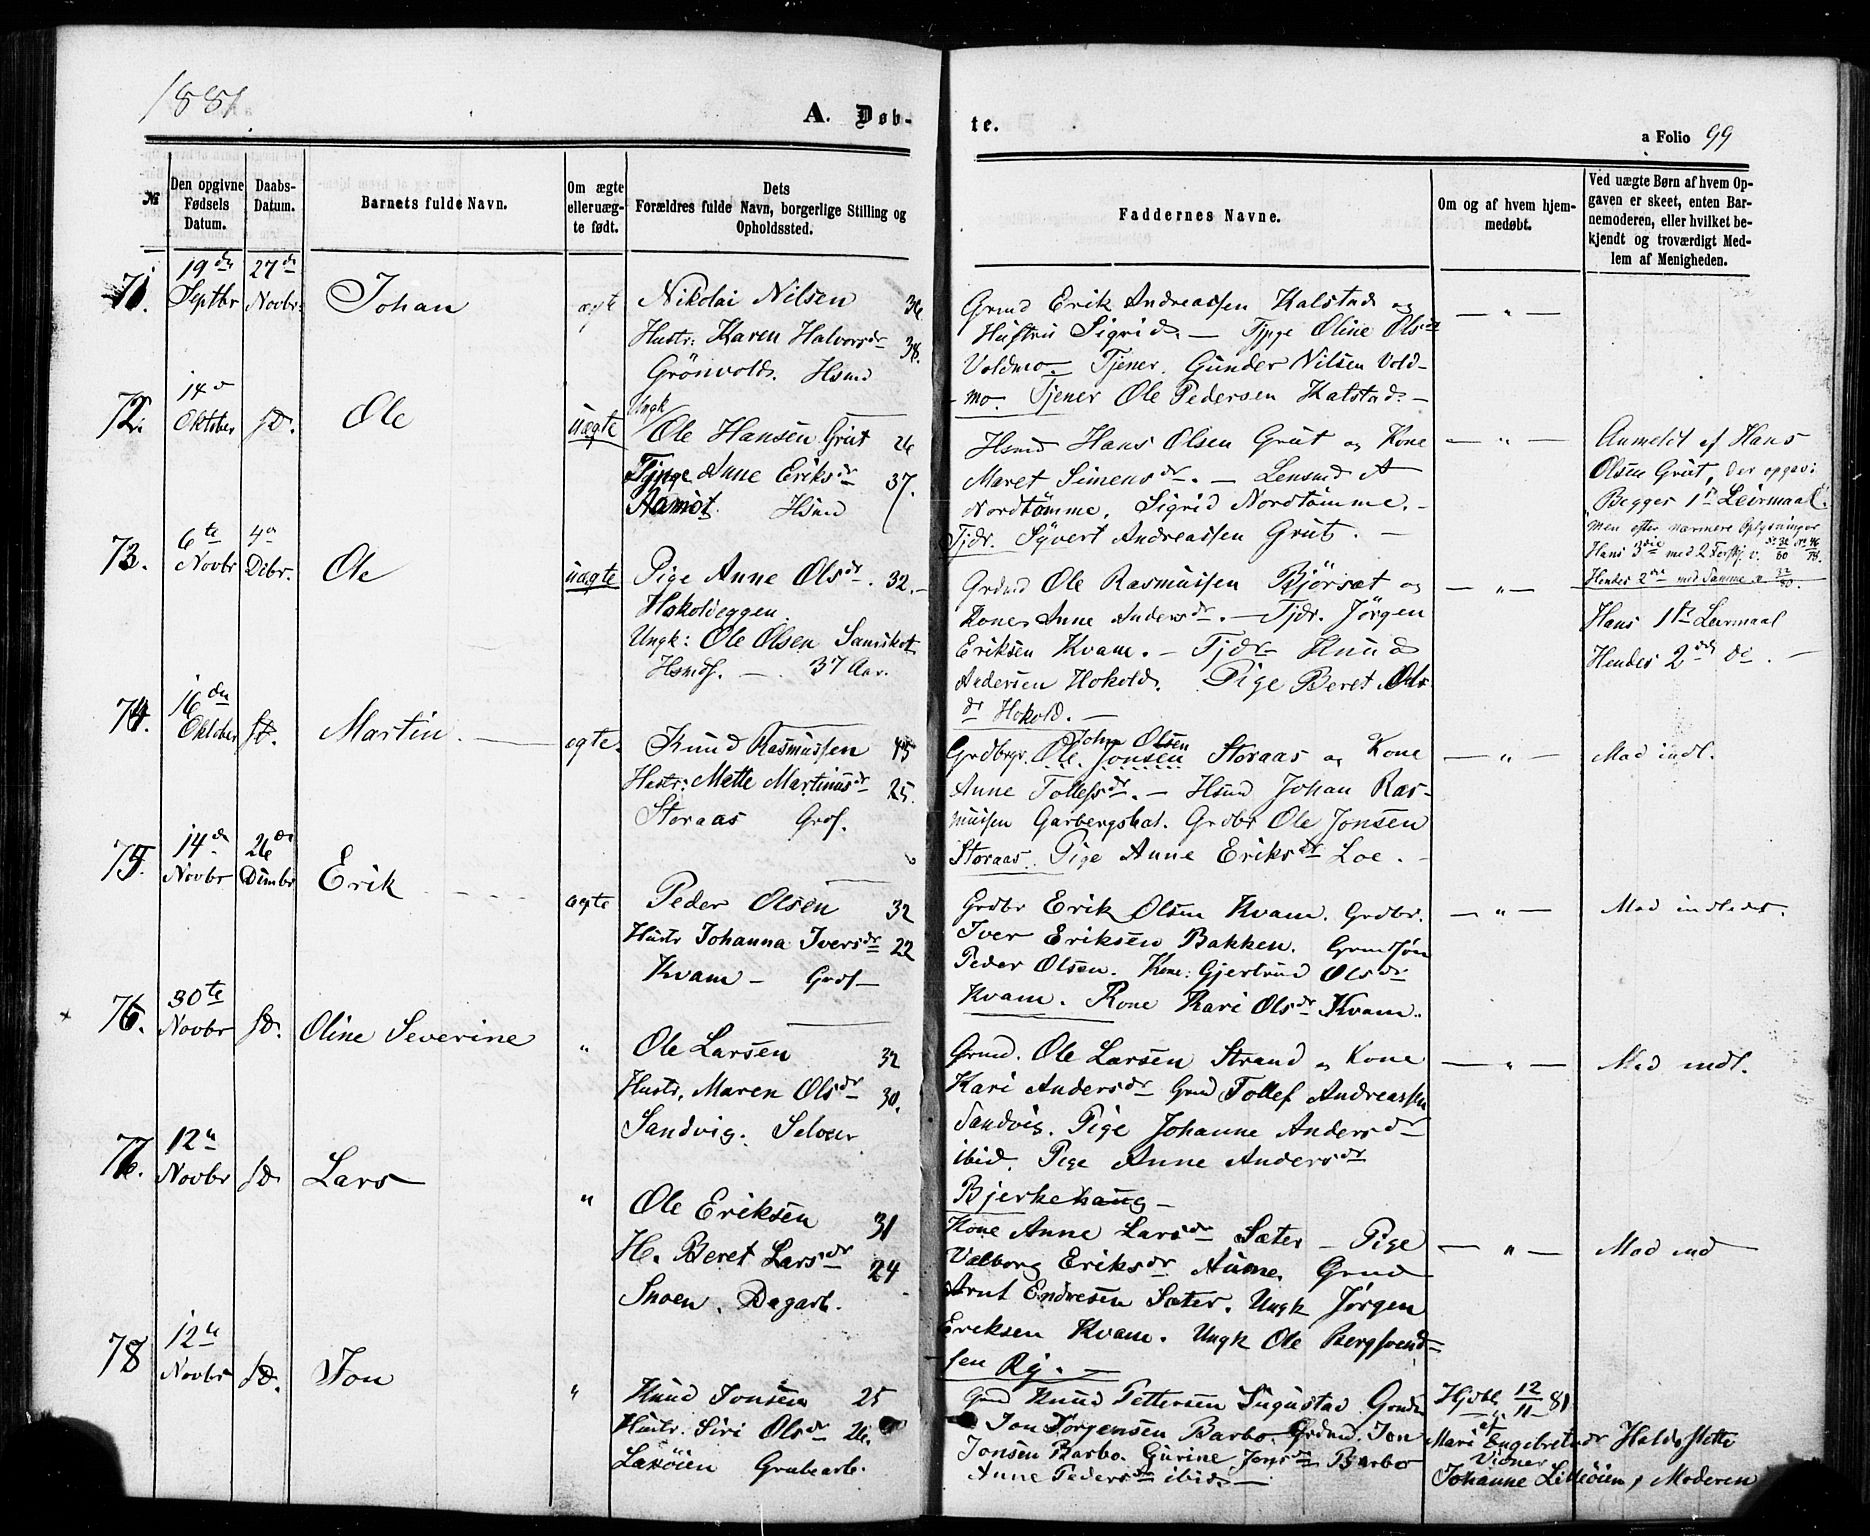 1881
A. Døb-
te.
a Folio 99
№
Den opgivne
Fødsels
Datum.
Daabs-
Datum.
Barnets fulde Navn.
Om ægte
eller uæg-
te født.
Dets
Forældres fulde Navn, borgerlige Stilling og
Opholdssted.
Faddernes Navne.
Om og af hvem hjem-
medøbt.
Ved uægte Børn af hvem Op-
gaven er skeet, enten Bar-
nemoderen, eller hvilket be-
kjendt og troværdigt Med-
lem af Menigheden.
71.
19de
Septbr
27de
Novbr.
Johan
ægte
Nikolai Nilsen 36
Hustr: Karen Halvorsdr 38.
Grönvold. Hsmd
Grmd Erik Andreassen Kalstad og
Hustru Sigrid. — Tjpge Oline Olsdr
Voldmo. Tjener Gunder Nilsen Vold-
mo. Tjener Ole Pedersen Kalstad. —
— „ —
72.
14d
Oktober
sd.
Ole
uægte
Ungk
Ole Hansen Grut 26
Tjpge Anne Eriksdr 37.
Aamot. Hsmd
Hsmd Hans Olsen Grut og Kone
Maret Simensdr. — Lensmd A
Nordtömme. Sigrid Nordtömme. —
Tjdr. Syvert Andreassen Grut. —
— „ —
Anmeldt af Hans
Olsen Grut, der opgav:
Begges 1ste Leirmaal.
Men efter nærmere Oplysninger
Hans 3die med 2 Forskj. v.
Hendes 2det med Samme v. 32/80.
73.
6te
Novbr
4de
Dcbr.
Ole
uægte
Pige Anne Olsdr. 32. —
Hokoldeggen
Ungk: Ole Olsen
Hsmdf. — . 37 Aar.
Grdmd Ole Rasmussen Björset og
Kone Anne Andersdr. — Tjdr. Jörgen
Eriksen Kvam. — Tjdr Knud
Andersen Hokold. Pige Beret Ols
dr Hokold. —
— „ —
Hans 1ste Leirmaal
Hendes 2det do. —
74.
16de
Oktober
sd.
Martin. —
ægte.
Knud Rasmussen 45
Hustr: Mette Martinusdr 25.
Storaas Grdf.
John Olsen
Grdbrgr. Ole Jonsen Storaas og Kone
Anne Tollefsdr. — Hsmd Johan Ras-
mussen Garbergshat. Grdbr Ole Jonsen
Storaas. Pige Anne Eriksdr Loe. —
— „ —
Mod indl.
75.
14de
Novbr
26de
Dcmbr
Erik
ægte
Peder Olsen 32
Hustr Johanna Iversdr 22
Kvam — Grdf —
Grdbr Erik Olsen Kvam. Grdbr.
Iver Eriksen Bakken. Grmdsön
Peder Olsen. Kone: Gjertrud Olsdr
Kvam. Kone Kari Olsdr Kvam.
— „ —
Mod indledet.
76.
30te
Novbr
sd.
Oline Severine
„
Ole Larsen 32
Hustr. Maren Olsdr 30.
Sandvig. Selveier
Grmd. Ole Larsen Strand og Kone
Kari Andersdr Grmd Tollef Andreassen
Sandvig. Pige Johanne Andersdr
ibid. Pige Anne Andersdr
Bjerkehaug —
— „ —
Mod indl.
77.
12te
Novbr
sd.
Lars
„
Ole Eriksen 31
H. Beret Larsdr 24
Snoen. Dagarb.
Kone Anne Larsdr Sæter — Pige
Valborg Eriksdr Aune. Grmd
Arnt Endresen Sæter. Ungk Jørgen
Eriksen Kvam. Ungk Ole Bergsvend-
sen Ry. —
— „ —
Mod ind
78
12te
Novbr
sd.
Jon
„
Knud Jonsen 25
Hustr: Siri Olsdr 26.
Laxöien Grubearb.
Grmd Knud Pettersen Sugustad Grmd
Jon Jørgensen Barbo. Grdmd. Jon
Jonsen Barbo. Gurine Jonsdr Barbo
Anne Pedersdr ibid. —
Hjdbt 12/11 81
af
Mari Engebretsdr Haldosslette
Vidner
Johanne Lilleöien, Moderen